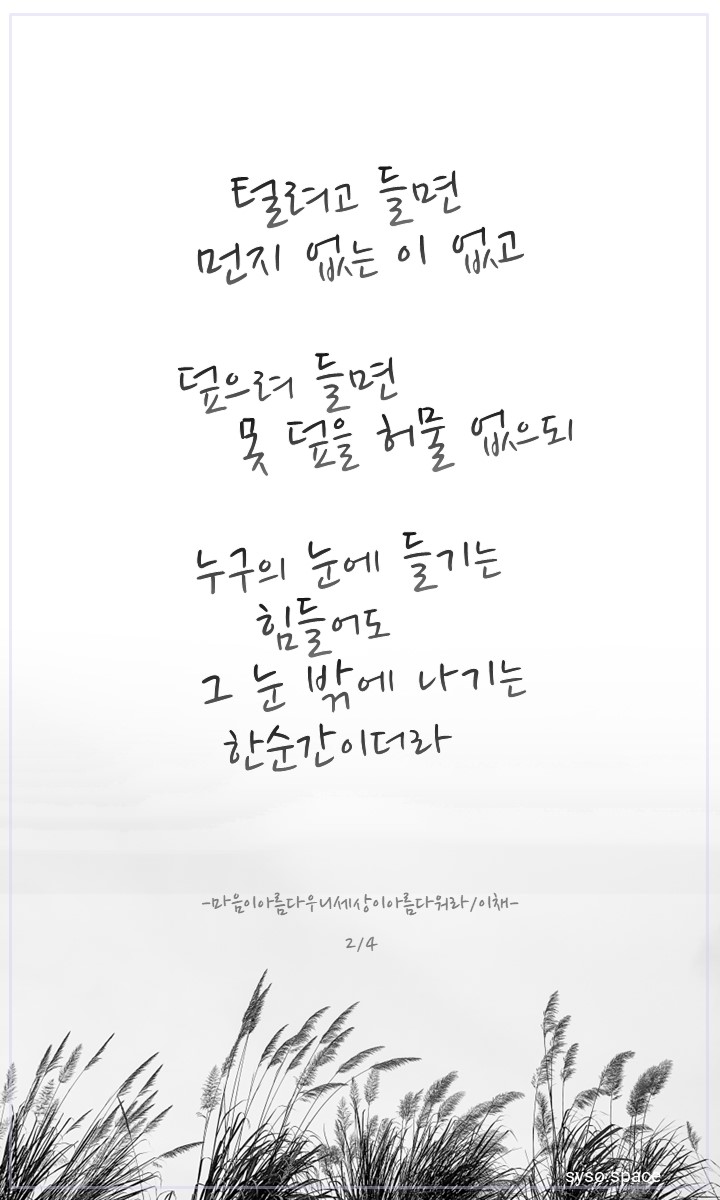 털려고 들면
먼지 없는 이 없고
덮으려 들면
못 덮을 허물 없으되
누구의 눈에 들기는
힘들어도
그 눈 밖에 나기는
한순간이더라
-마음이아름다우니세상이아름다워라/이채-
2/4
syso.space